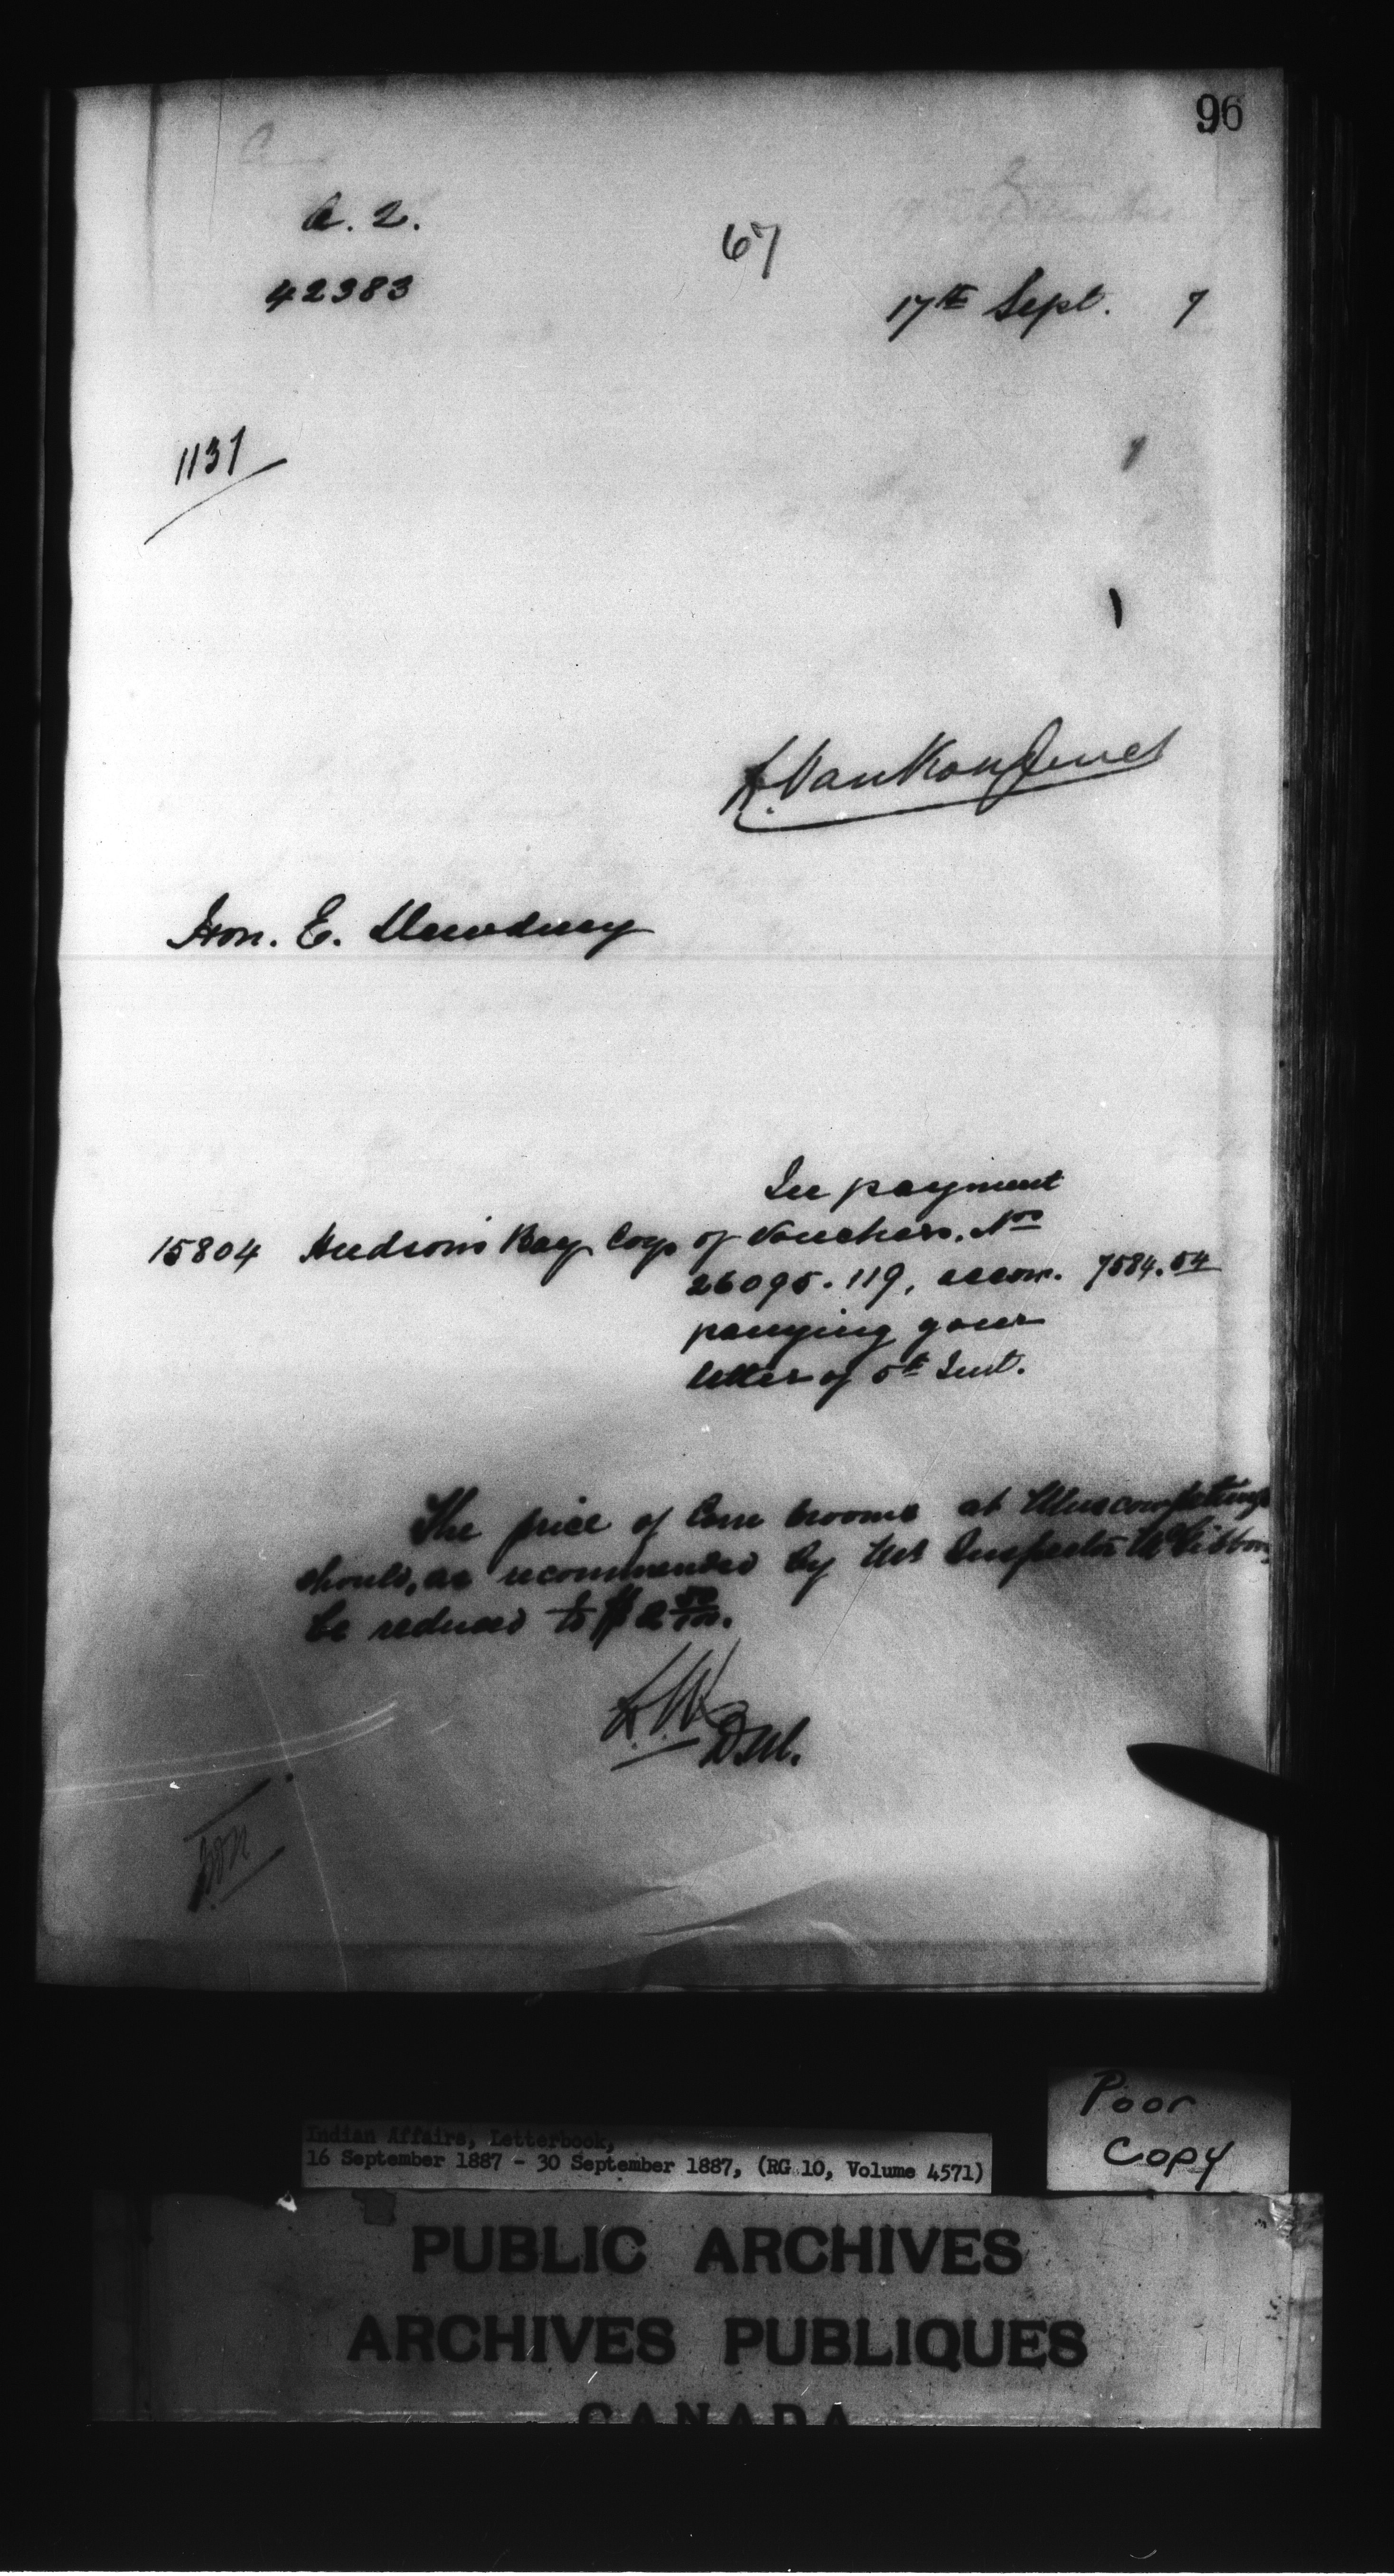 96
A. 2.
67
42383
17th Sept. 7
1131
L. VanKoughnet
Hon. E. Dewdney
In payment
15804 Hudson's Bay Coy of Vouchers. Nos
26095. 119, accom. 7584.54
panying your
letter of 5th Inst.
The price of Corn brooms at Muscowpetungs
should, as recommended by Mr Inspector McGibbon,
be reduced to $2 50/100.
L.V.
D.S.G.
Poor
Copy
Indian Affairs, Letterbook,
16 September 1887 - 30 September 1887, (RG 10, Volume 4571)
PUBLIC ARCHIVES
ARCHIVES PUBLIQUES
CANADA